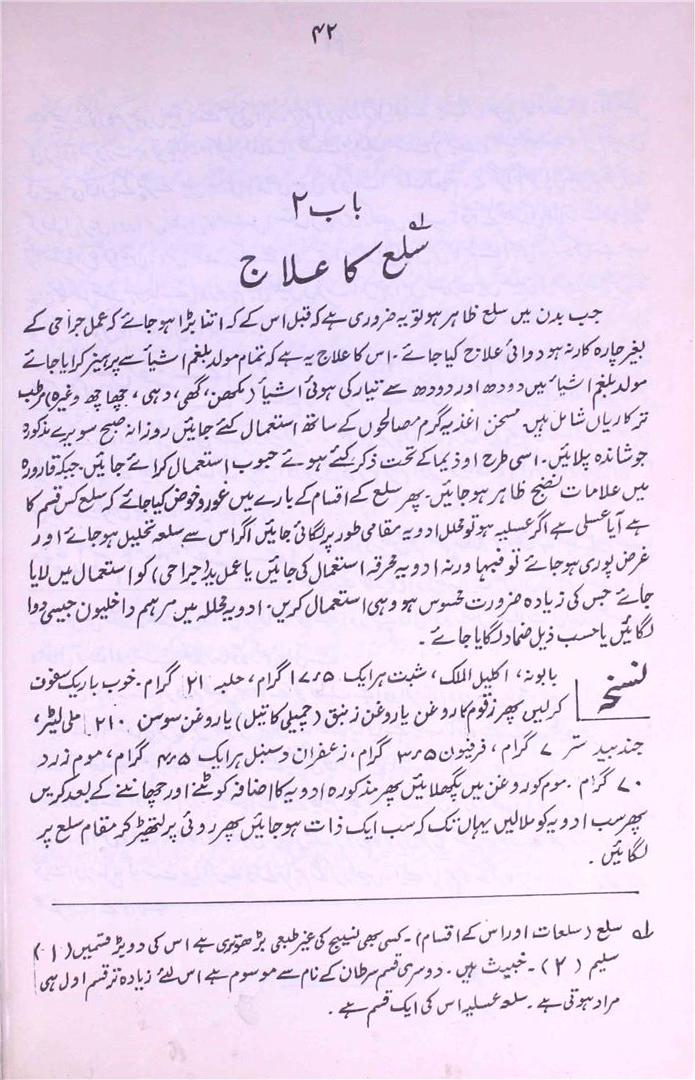 ۴۲
باب ۲
سلع کا علاج لہ
جب بدن میں سلع ظاہر ہو تو یہ ضروری ہے کہ قبل اس کے کہ اتنا بڑا ہو جائے کہ عمل جراحی کے
بغیر چارہ کار نہ ہو دوائی علاج کیا جائے۔ اس کا علاج یہ ہے کہ تمام مولد بلغم اشیأ سے پرہیز کرایا جائے
مولد بلغم اشیأ میں دودھ اور دودھ سے تیار کی ہوئی اشیأ (مکھن، گھی، دہی، چھاچھ وغیرہ) مرطب
ترکاریاں شامل ہیں۔ مسخن اغذیہ گرم مصالحوں کے ساتھ استعمال کئے جائیں روزانہ صبح سویرے مذکورہ
جوشاندہ پلائیں۔ اسی طرح اوذیما کے تحت ذکر کئے ہوئے حبوب استعمال کرائے جائیں۔ جبکہ قارورہ
میں علامات نضج ظاہر ہو جائیں۔ پھر سلع کے اقسام کے بارے میں غور و خوض کیا جائے کہ سلع کس قسم کا
ہے آیا عسلی ہے اگر عسلیہ ہو تو محلل ادویہ مقامی طور پر لگائی جائیں اگر اس سے سلعہ تحلیل ہو جائے اور
غرض پوری ہو جائے تو فبہا ورنہ ادویہ محرقہ استعمال کی جائیں یا عمل ید (جراحی) کو استعمال میں لایا
جائے جس کی زیادہ ضرورت محسوس ہو وہی استعمال کریں۔ ادویہ محللہ میں مرہم داخلیون جیسی دوا
لگائیں یا حسب ذیل ضماد لگایا جائے۔
نسخہ بابونہ، اکلیل الملک، شبت ہر ایک ۱۷٫۵ گرام، حلبہ ۲۱ گرام۔ خوب باریک سفوف
کر لیں پھر زقوم کا روغن یا روغن زنبق (چمیلی کا تیل) یا روغن سوسن ۲۱۰ ملی لیٹر،
جندبیدستر ۷ گرام، فرفیون ۳٫۵ گرام، زعفران و سنبل ہر ایک ۴٫۵ گرام، موم زرد
۷۰ گرام۔ موم کو روغن میں پگھلائیں پھر مذکورہ ادویہ کا اضافہ کوٹنے اور چھاننے کے بعد کریں
پھر سب ادویہ کو ملا لیں یہاں تک کہ سب ایک ذات ہو جائیں پھر روئی پر لتھیڑ کر مقام سلع پر
لگائیں۔
لہ سلع (سلعات اور اس کے اقسام)۔ کسی بھی نسیج کی غیر طبعی بڑھوتری ہے اس کی دو بڑی قسمیں (۱)
سلیم (۲)۔ خبیث ہیں۔ دوسری قسم سرطان کے نام سے موسوم ہے اس لئے زیادہ تر قسم اول ہی
مراد ہوتی ہے۔ سلعہ عسلیہ اس کی ایک قسم ہے۔